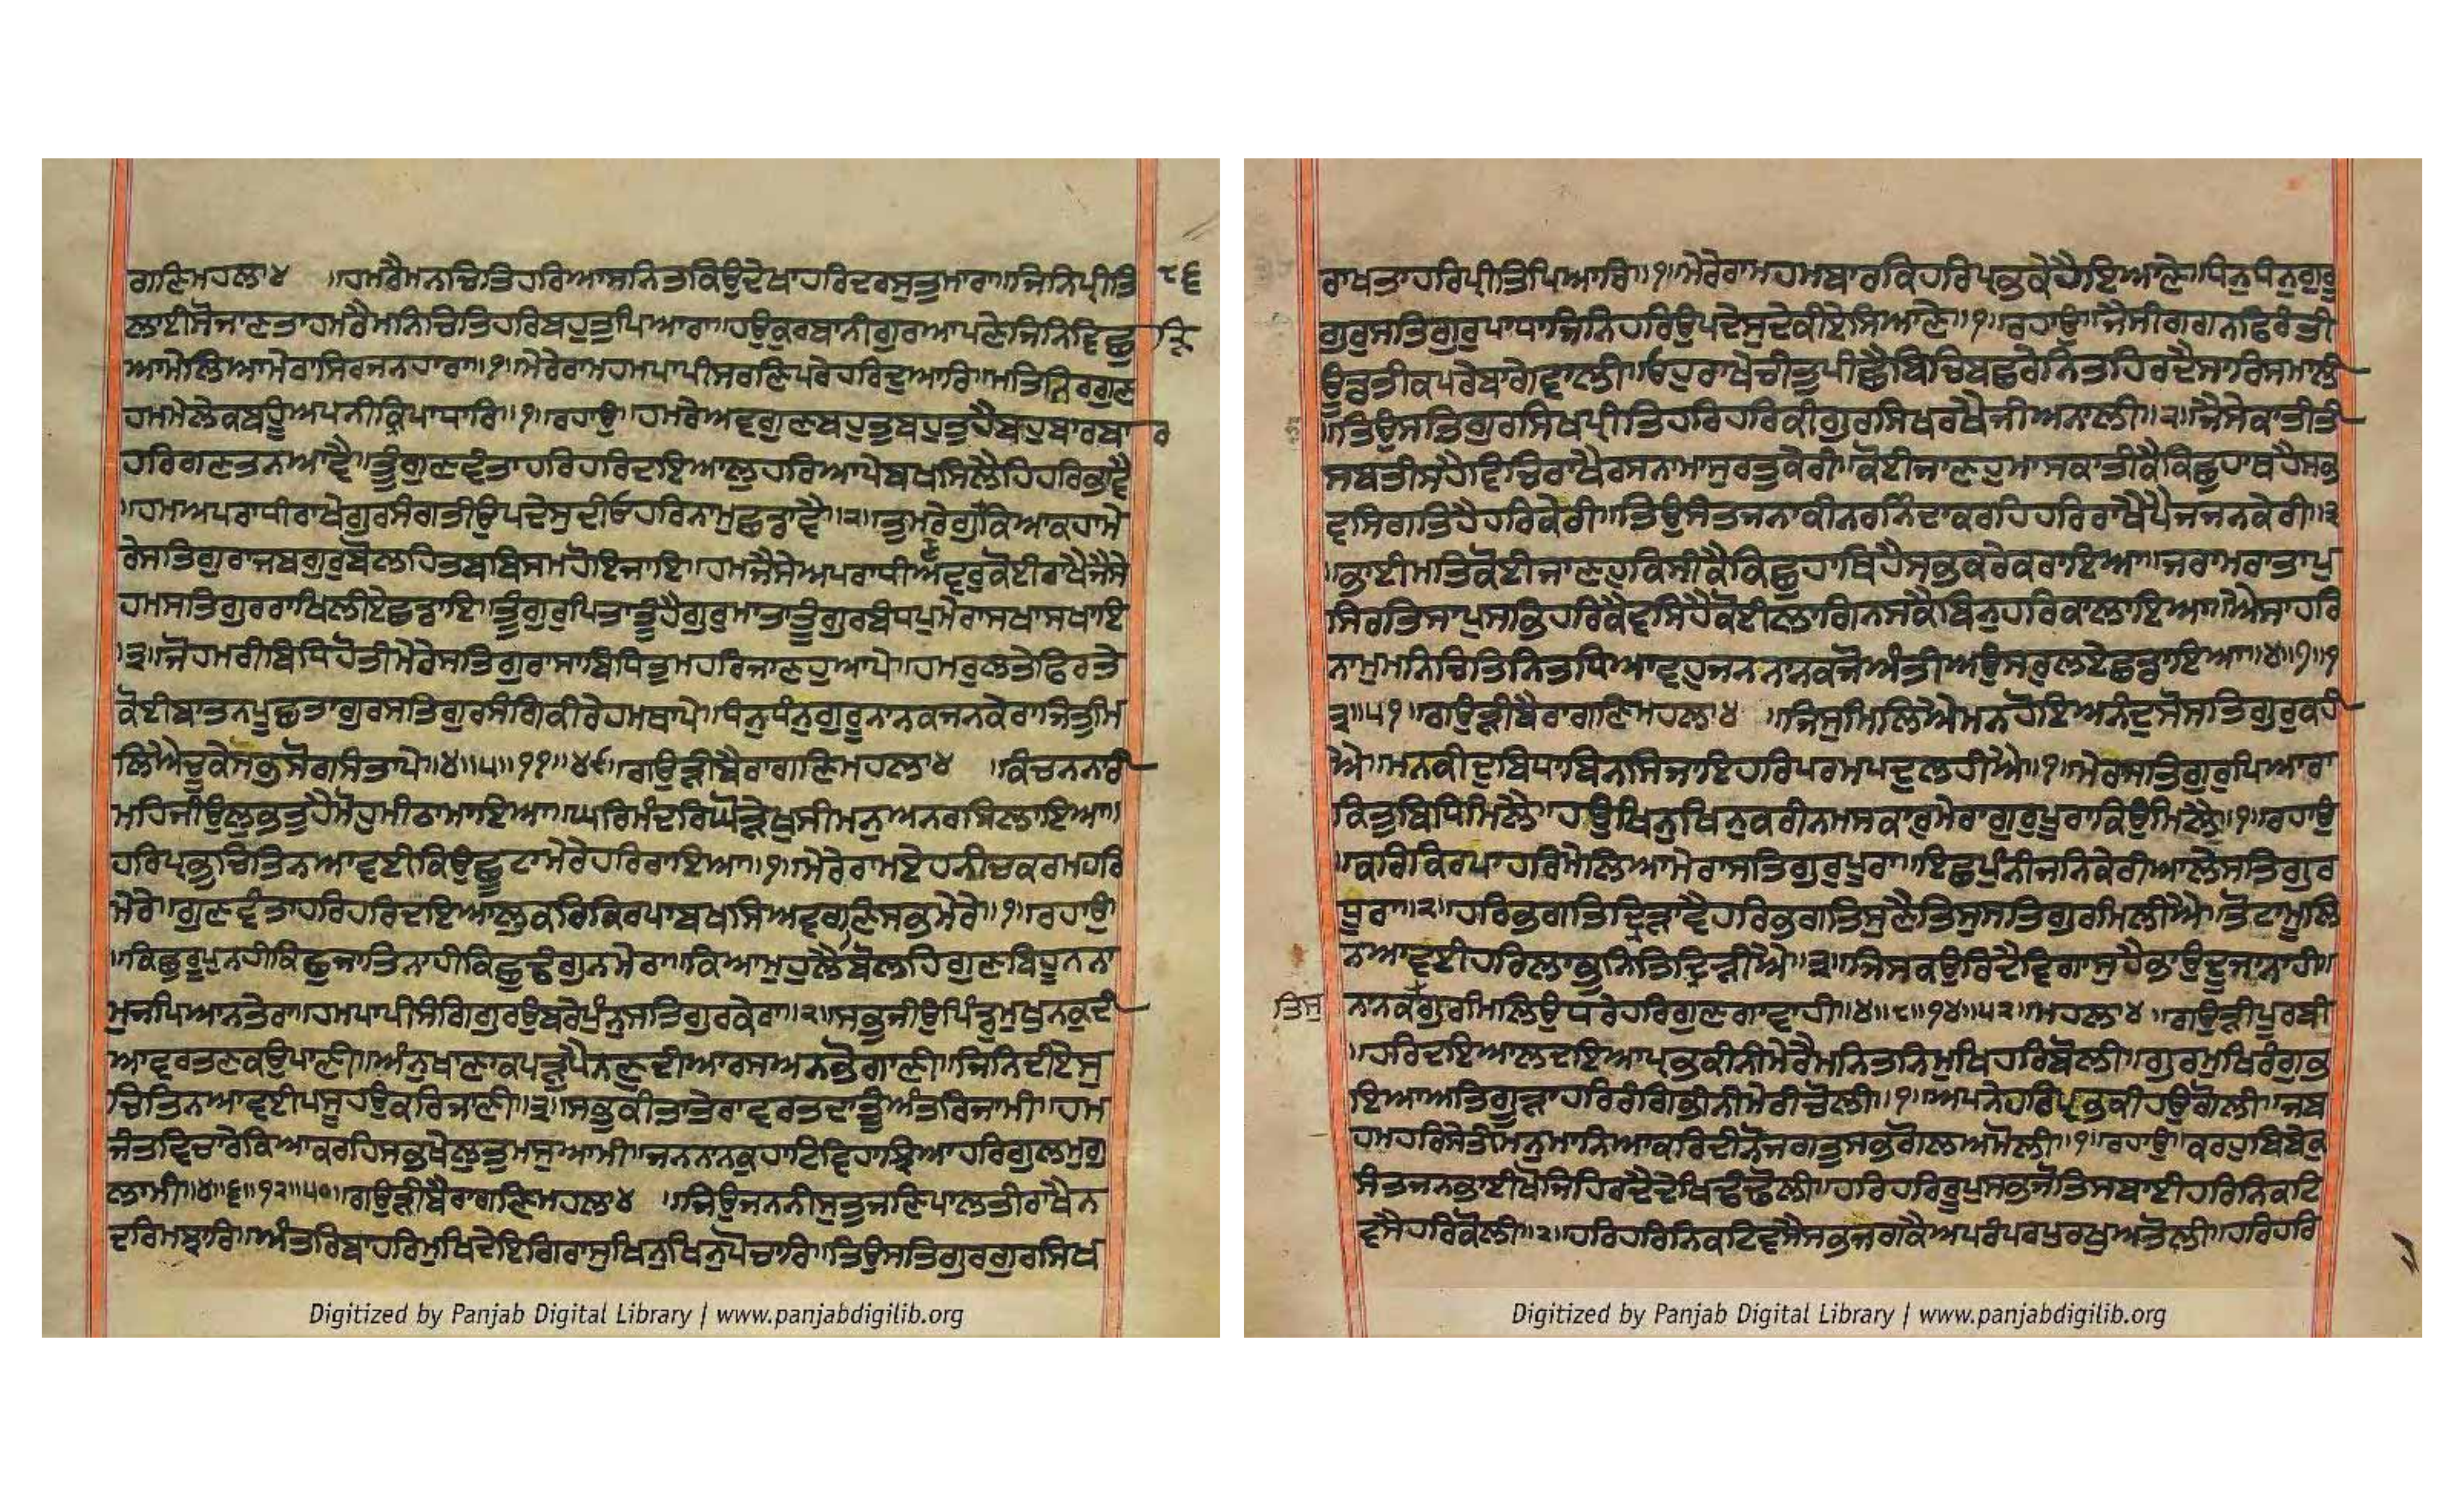 ਰਾਗਣਿਮਹਲਾ੪ ॥ਹਮਰੈਮਨਚਿਤਿਹਰਿਆਸਨਿਤਕਿਉਦੇਖਾਹਰਿਦਰਸੁਤੁਮਾਰਾ॥ਜਿਨਿਪ੍ਰੀਤਿ ੮੬
ਲਾਈਸੋਜਾਣਤਾਹਮਰੈਮਨਿਚਿਤਿਹਰਿਬਹੁਤੁਪਿਆਰਾ॥ਹਉਕੁਰਬਾਨੀਗੁਰਆਪਣੇਜਿਨਿਵਿਛੁ ੜਿ
ਆਮੇਲਿਆਮੇਰਾਸਿਰਜਨਹਾਰਾ॥੧॥ਮੇਰੇਰਾਮਹਮਪਾਪੀਸਰਣਿਪਰੇਹਰਿਦੁਆਰਿ॥ਮਤਿਨਿਰਗੁਣ
ਹਮਮੇਲੇਕਬਹੂੰਅਪਨੀਕਿਰਪਾਧਾਰਿ॥੧॥ਰਹਾਉ॥ਹਮਰੇਅਵਗੁਣਬਹੁਤੁਬਹੁਤੁਹੈਬਹੁਬਾਰਬਾ ਰ
ਹਰਿਗਣਤਨਆਵੈ॥ਤੂੰਗੁਣਵੰਤਾਹਰਿਹਰਿਦਇਆਲੁਹਰਿਆਪੇਬਖਸਿਲੈਹਿਹਰਿਭਾਵੈ
॥ਹਮਅਪਰਾਧੀਰਾਖੇਗੁਰਸੰਗਤੀਉਪਦੇਸੁਦੀਓਹਰਿਨਾਮੁਛਡਾਵੈ॥੨॥ਤੁਮਰੇਗੁਣਕਿਆਕਹਾਮੇ
ਰੇਸਤਿਗੁਰਾਜਬਗੁਰੁਬੋਲਹਿਤਬਬਿਸਮਹੋਇਜਾਇ॥ਹਮਜੈਸੇਅਪਰਾਧੀਅਵਰੁਕੋਈਰਾਖੈਜੈਸੇ
ਹਮਸਤਿਗੁਰਰਾਖਿਲੀਏਛਡਾਇ॥ਤੂੰਗੁਰੁਪਿਤਾਤੂੰਹੈਗੁਰੁਮਾਤਾਤੂੰਗੁਰਬੰਧਪੁਮੇਰਾਸਖਾਸਖਾਇ
॥੩॥ਜੋਹਮਰੀਬਿਧਿਹੋਤੀਮੇਰੇਸਤਿਗੁਰਾਸਾਬਿਧਿਤੁਮਹਰਿਜਾਣਹੁਆਪੇ॥ਹਮਰੁਲਤੇਫਿਰਤੇ
ਕੋਈਬਾਤਨਪੂਛਤਾਗੁਰਸਤਿਗੁਰਸੰਗਿਕੀਰੇਹਮਥਾਪੇ॥ਧੰਨੁਧੰਨੁਗੁਰੂਨਾਨਕਜਨਕੇਰਾਜਿਤੁਮਿ
ਲਿਐਚੂਕੇਸਭਸੋਗਸੰਤਾਪੇ॥੪॥੫॥੧੧॥੪੯॥ਗਉੜੀਬੈਰਾਗਣਿਮਹਲਾ੪ ॥ਕੰਚਨਨਾਰੀ
ਮਹਿਜੀਉਲੁਭਤੁਹੈਮੋਹੁਮੀਠਾਮਾਇਆ॥ਘਰਮੰਦਰਿਘੋੜੇਖੁਸੀਮਨੁਅਨਰਸਿਲਾਇਆ॥
ਹਰਿਪ੍ਰਭੁਚਿਤਿਨਆਵਈਕਿਉਛੂਟਾਮੇਰੇਹਰਿਰਾਇਆ॥੧॥ਮੇਰੇਰਾਮਇਹਨੀਚਕਰਮਹਰਿ
ਮੇਰੇ॥ਗੁਣਵੰਤਾਹਰਿਹਰਿਦਇਆਲੁਕਰਿਕਿਰਪਾਬਖਸਿਅਵਗਣਿਸਭਮੇਰੇ॥੧॥ਰਹਾਉ
॥ਕਿਛੁਰੂਪੁਨਹੀਕਿਛੁਜਾਤਿਨਾਹੀਕਿਛੁਢੰਗੁਨਮੇਰਾ॥ਕਿਆਮੁਹੁਲੈਬੋਲਹਿਗੁਣਬਿਹੂਨਨਾ
ਮੁਜਪਿਆਨਤੇਰਾ॥ਹਮਪਾਪੀਸੰਗਿਗੁਰਉਬਰੇਪੁੰਨੁਸਤਿਗੁਰਕੇਰਾ॥੨॥ਸਭੁਜੀਉਪਿੰਡੁਮੁਖੁਨਕੁਦੀ
ਆਵਰਤਣਕਉਪਾਣੀ॥ਅੰਨੁਖਾਣਾਕਪੜੁਪੈਨਣੁਦੀਆਰਸਅਨਭੋਗਾਣੀ॥ਜਿਨਿਦੀਏਸੁ
ਚਿਤਿਨਆਵਈਪਸੂਹਉਕਰਿਜਾਣੀ॥੩॥ਸਭੁਕੀਤਾਤੇਰਾਵਰਤਦਾਤੂੰਅੰਤਰਿਜਾਮੀ॥ਹਮ
ਜੰਤਵਿਚਾਰੇਕਿਆਕਰਹਿਸਭੁਖੇਲੁਤੁਮਸੁਆਮੀ॥ਜਨਨਾਨਕੁਹਾਟਿਵਿਹਾਝਿਆਹਰਿਗੁਲਮਗੁ
ਲਾਮੀ॥੪॥੬॥੧੨॥੫੦॥ਗਉੜੀਬੈਰਾਗਣਿਮਹਲਾ੪ ॥ਜਿਉਜਨਨੀਸੁਤੁਜਣਿਪਾਲਤੀਰਾਖੈਨ
ਦਰਿਮਝਾਰਿ॥ਅੰਤਰਿਬਾਹਰਿਮੁਖਿਦੇਇਗਿਰਾਸੁਖਿਨੁਖਿਨੁਪੋਚਾਰਿ॥ਤਿਉਸਤਿਗੁਰਗੁਰਸਿਖ
Digitized by Panjab Digital Library | www.panjabdigilib.org
ਰਾਖਤਾਹਰਿਪ੍ਰੀਤਿਪਿਆਰਿ॥੧॥ਮੇਰੇਰਾਮਹਮਬਾਰਕਿਹਰਿਪ੍ਰਭਕੇਹੈਇਆਣੇ॥ਧੰਨੁਧੰਨੁਗੁਰੂ
ਗੁਰੁਸਤਿਗੁਰੁਪਾਧਾਜਿਨਿਹਰਿਉਪਦੇਸੁਦੇਕੀਏਸਿਆਣੇ॥੧॥ਰਹਾਉ॥ਜੈਸੀਗਗਨਿਫਿਰੰਤੀ
ਊਡਤੀਕਪਰੇਬਾਗੇਵਾਲੀ॥ਓਹੁਰਾਖੇਚੀਤੁਪੀਛੈਬਿਚਿਬਛਰੇਨਿਤਹਿਰਦੈਸਾਰਿਸਮਾਲੀ
॥ਤਿਉਸਤਿਗੁਰਸਿਖਪ੍ਰੀਤਿਹਰਿਹਰਿਕੀਗੁਰਸਿਖਰਖੈਜੀਅਨਾਲੀ॥੨॥ਜੈਸੇਕਾਤੀਤੀ
ਸਬਤੀਸਹੈਵਿਚਿਰਾਖੈਰਸਨਾਮਾਸੁਰਤੁਕੇਰੀ॥ਕੋਈਜਾਣਹੁਮਾਸਕਾਤੀਕੈਕਿਛੁਹਾਥਹੈਸਭ
ਵਸਿਗਤਿਹੈਹਰਿਕੇਰੀ॥ਤਿਉਸੰਤਜਨਾਕੀਨਰਨਿੰਦਾਕਰਹਿਹਰਿਰਾਖੈਪੈਜਜਨਕੇਰੀ॥੩
॥ਭਾਈਮਤਿਕੋਈਜਾਣਹੁਕਿਸੀਕੈਕਿਛੁਹਾਥਿਹੈਸਭਕਰੇਕਰਾਇਆ॥ਜਰਾਮਰਾਤਾਪੁ
ਸਿਰਤਿਸਾਪੁਸਭੁਹਰਿਕੈਵਸਿਹੈਕੋਈਲਾਗਿਨਸਕੈਬਿਨੁਹਰਿਕਾਲਾਇਆ॥ਐਸਾਹਰਿ
ਨਾਮੁਮਨਿਚਿਤਿਨਿਤਧਿਆਵਹੁਜਨਨਾਨਕਜੋਅੰਤੀਅਉਸਰਲਏਛਡਾਇਆ॥੪॥੭॥੧
੩॥੫੧॥ਗਉੜੀਬੈਰਾਗਣਿਮਹਲਾ੪ ॥ਜਿਸੁਮਿਲਿਐਮਨਹੋਇਅਨੰਦੁਸੋਸਤਿਗੁਰੁਕਹੀ
ਐ॥ਮਨਕੀਦੁਬਿਧਾਬਿਨਸਿਜਾਇਹਰਿਪਰਮਪਦੁਲਹੀਐ॥੧॥ਮੇਰਾਸਤਿਗੁਰੁਪਿਆਰਾ
ਕਿਤੁਬਿਧਿਮਿਲੈ॥ਹਉਖਿਨੁਖਿਨੁਕਰੀਨਮਸਕਾਰੁਮੇਰਾਗੁਰੁਪੂਰਾਕਿਉਮਿਲੈ॥੧॥ਰਹਾਉ
॥ਕਰਿਕਿਰਪਾਹਰਿਮੇਲਿਆਮੇਰਾਸਤਿਗੁਰੁਪੂਰਾ॥ਇਛਪੁੰਨੀਜਨਿਕੇਰੀਆਲੇਸਤਿਗੁਰ
ਧੂਰਾ॥੨॥ਹਰਿਭਗਤਿਦ੍ਰਿੜਾਵੈਹਰਿਭਗਤਿਸੁਣੈਤਿਸੁਸਤਿਗੁਰਮਿਲੀਐ॥ਤੋਟਾਮੂਲਿ
ਨਆਵਈਹਰਿਲਾਭੁਨਿਤਿਦ੍ਰਿੜੀਐ॥੩॥ਜਿਸਕਉਰਿਦੈਵਿਗਾਸੁਹੈਭਾਉਦੂਜਾਨਾਹੀ॥
ਤਿਸੁ ਨਾਨਕਗੁਰਮਿਲਿਉਧਰੇਹਰਿਗੁਣਗਾਵਾਹੀ॥੪॥੮॥੧੪॥੫੨॥ਮਹਲਾ੪ ॥ਗਉੜੀਪੂਰਬੀ
॥ਹਰਿਦਇਆਲਦਇਆਪ੍ਰਭਕੀਨੀਮੇਰੈਮਨਿਤਨਿਮੁਖਿਹਰਿਬੋਲੀ॥ਗੁਰਮੁਖਿਰੰਗੁਭ
ਇਆਅਤਿਗੂੜਾਹਰਿਰੰਗਿਭੀਨੀਮੇਰੀਚੋਲੀ॥੧॥ਅਪਨੇਹਰਿਪ੍ਰਭਕੀਹਉਗੋਲੀ॥ਜਬ
ਹਮਹਰਿਸੇਤੀਮਨੁਮਾਨਿਆਕਰਿਦੀਨੋਜਗਤੁਸਭੁਗੋਲਅਮੋਲੀ॥੧॥ਰਹਾਉ॥ਕਰਹੁਬਿਬੇਕੁ
ਸੰਤਜਨਭਾਈਖੋਜਿਹਿਰਦੈਦੇਖਿਢੰਢੋਲੀ॥ਹਰਿਹਰਿਰੂਪੁਸਭਜੋਤਿਸਬਾਈਹਰਿਨਿਕਟਿ
ਵਸੈਹਰਿਕੋਲੀ॥੨॥ਹਰਿਹਰਿਨਿਕਟਿਵਸੈਸਭਜਗਕੈਅਪਰੰਪਰਪੁਰਖੁਅਤੋਲੀ॥ਹਰਿਹਰਿ
Digitized by Panjab Digital Library | www.panjabdigilib.org